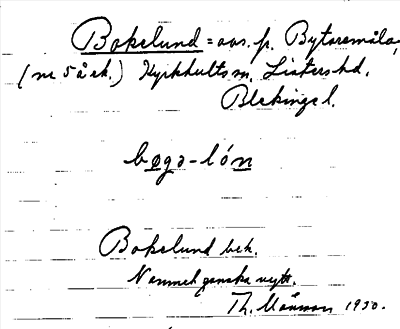 Bokelund = avs. p. Bytaremåla,
(nr 5 å ek.) Kyrkhults sn, Listers hd,
Blekinge l.
bøgə-lón
Bokelund bek.
Namnet ganska nytt.
Th. Månsson 1930.